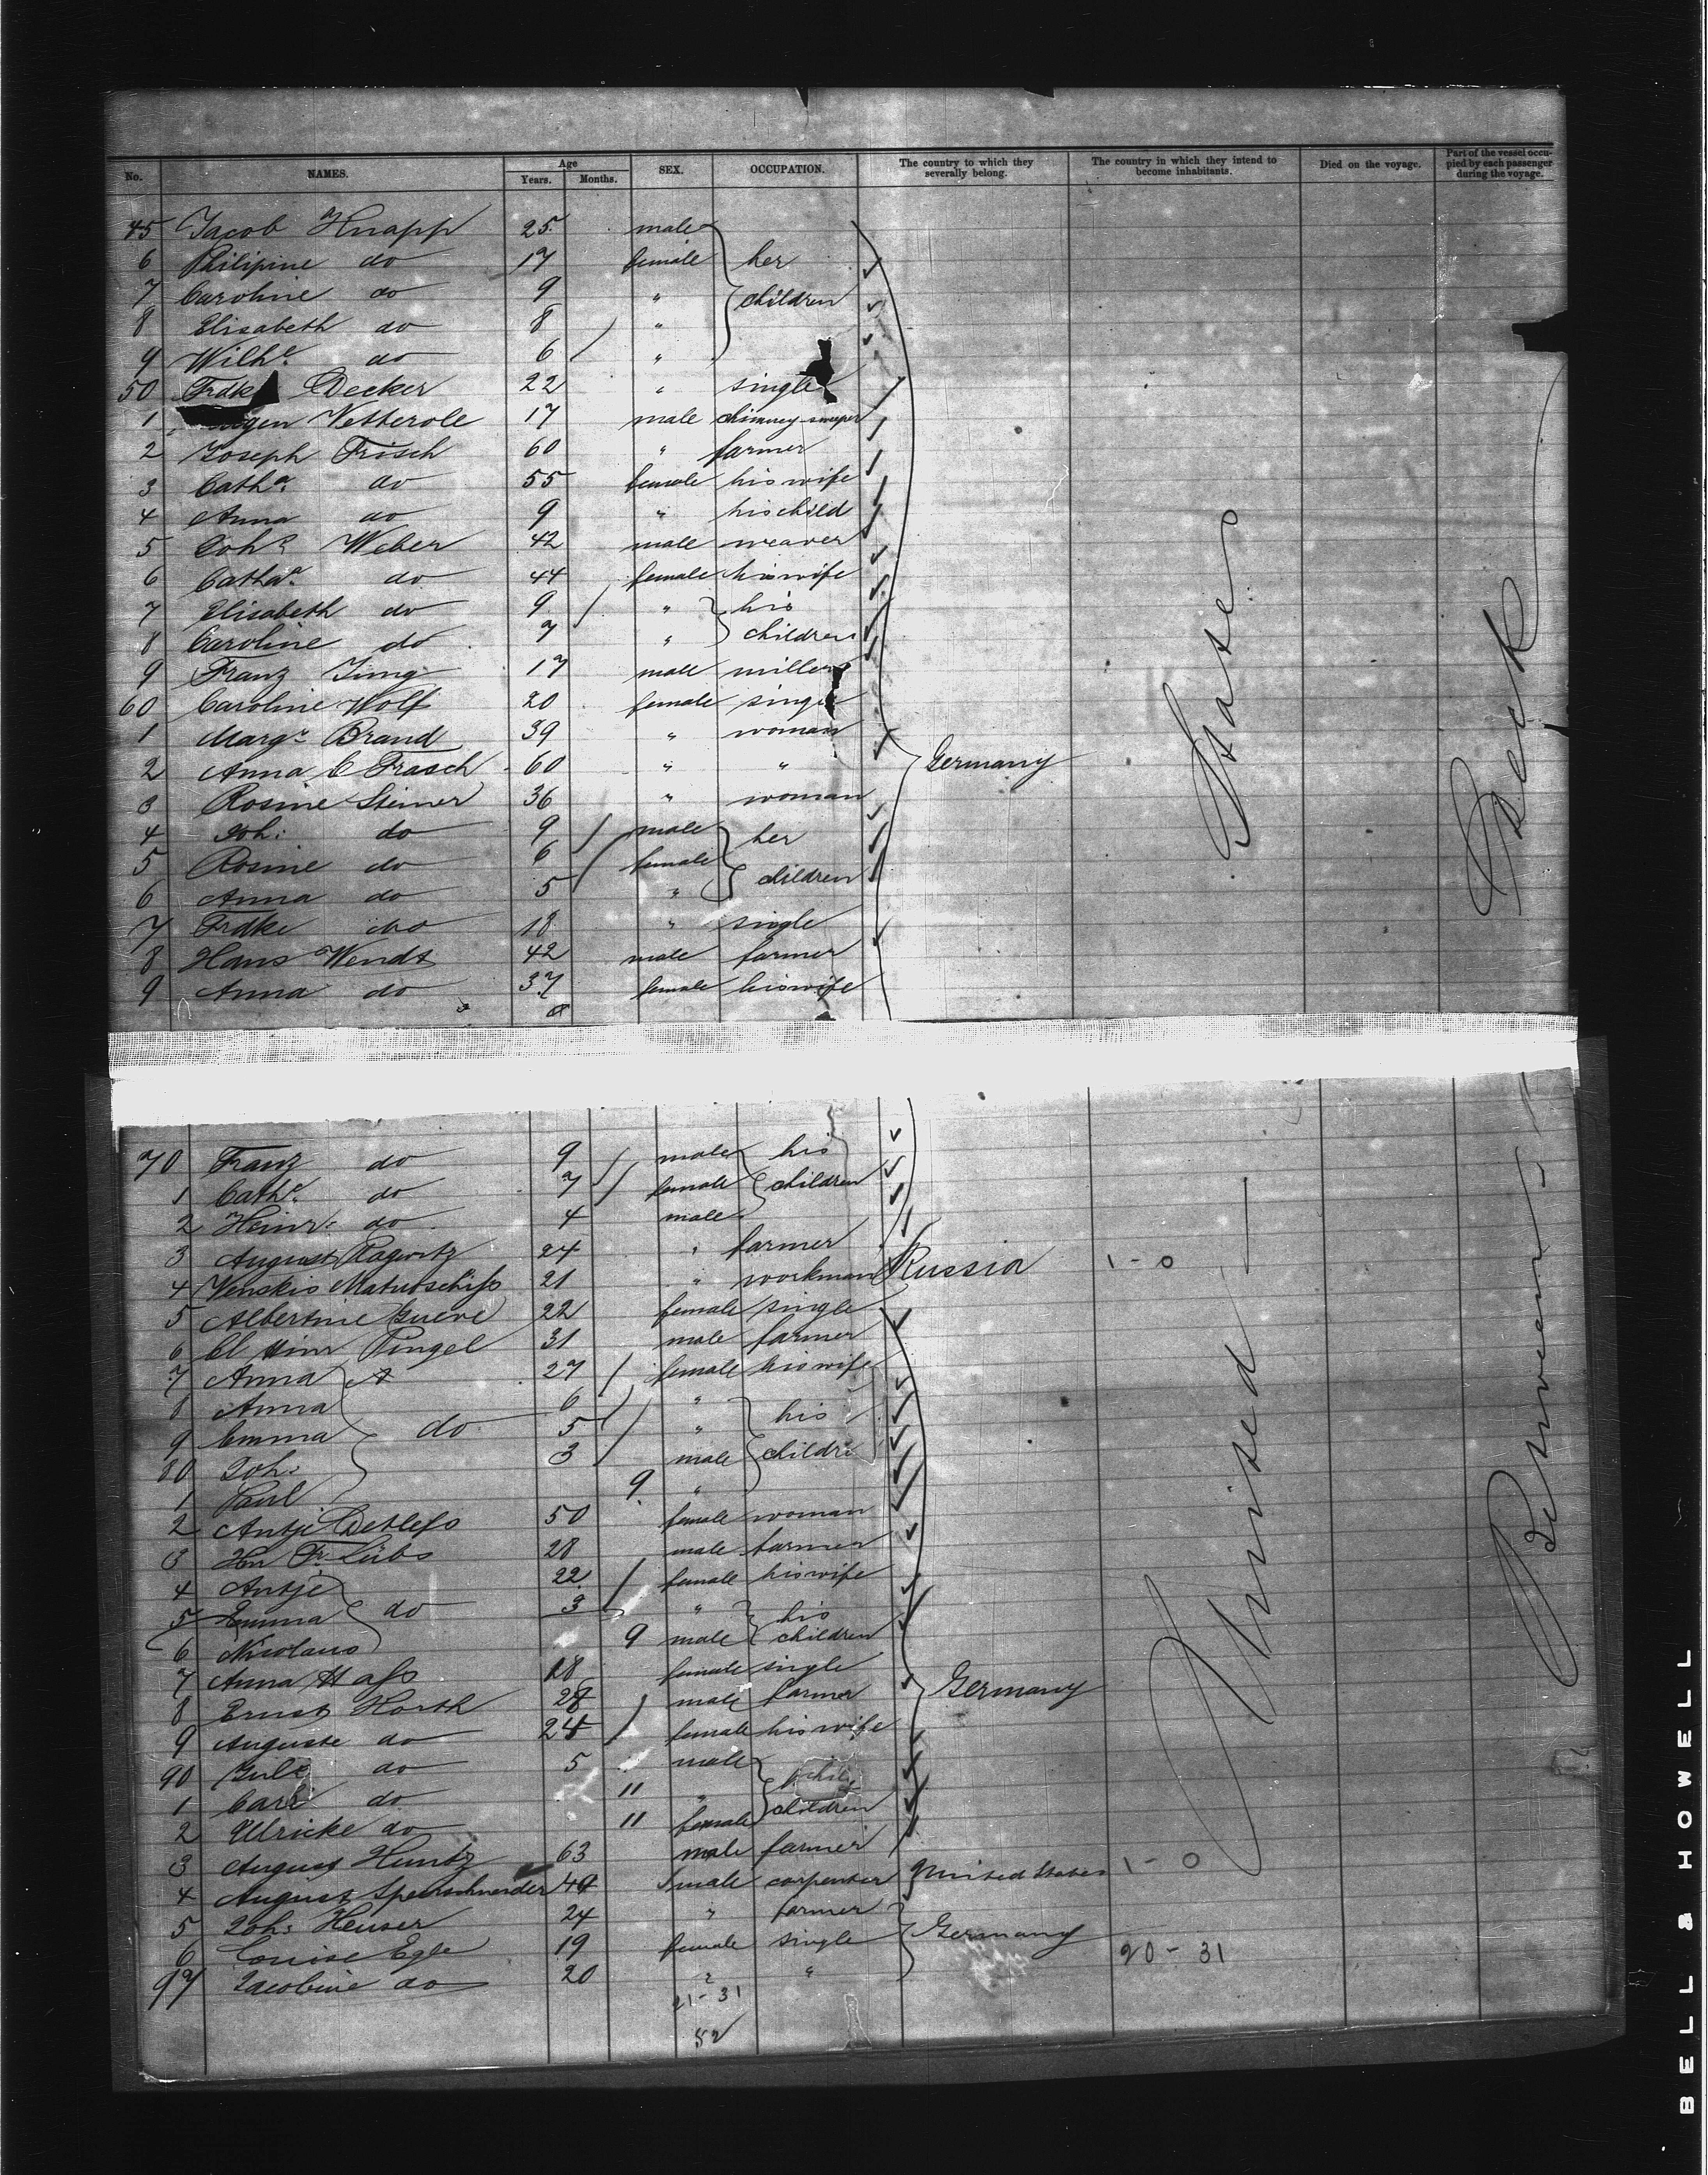 No. NAMES. Age Years. Months. SEX. OCCUPATION. The country to which they severally belong. The country in which they intend to become inhabitants. Died on the voyage. Part of the vessel occupied by each passenger during the voyage.
45 Jacob Knapp 25 male
6 Philipine do 17 female her
7 Caroline do 9 " children
8 Elisabeth do 8 "
9 Wilhe. do 6 "
50 Frdke Decker 22 " single
1 Vetterole 17 male chimney-sweeper
2 Joseph Frisch 60 " farmer
3 Catha. do 55 female his wife
4 Anna do 9 " his child
5 Weber 42 male weaver
6 Catha. do 44 female his wife
7 Elisabeth do 9 " his
8 Caroline do 7 " children
9 Franz 17 male miller
60 Caroline Wolf 20 female single
1 Margr. Brand 39 " woman
2 Anna C Frasch 60 " "
Germany
3 Rosine Steiner 36 " woman
4 Joh: do 9 male her
5 Rosine do 6 female
6 Anna do 5 " children
7 Frdke do 18 " single
8 Hans Wendt 42 male farmer
9 Anna do 37 female his wife
States
Deck
70 Franz do 9 male his
1 Cathe. do 7 female children
2 Heinr: do 4 male
3 August Ragwitz 24 " farmer
4 21 " workman Russia 1-0
5 Albertine 22 female single
6 Cl Hinr Pingel 31 male farmer
7 Anna A 27 female his wife
8 Anna 6 " his
9 Emma do 5 "
80 Joh: 3 male children
1 Paul 9 "
2 Antje Detlefs 50 female woman
3 Hn Fr. Lübs 28 male farmer
4 Antje 22 female his wife
5 Emma do 3 " his
6 Nicolaus 9 male children
7 Anna Hass 18 female single
8 Ernst Korth male farmer Germany
9 Auguste do female his wife
90 do 5 male
1 Carl do 11 "
2 Ulricke do 11 female children
3 August Huntz 63 male farmer
4 August Speerschneider male carpenter United States 1-0
5 Joh: Heuser 24 " farmer
6 Louise Egle 19 female single Germany
97 Jacobine do 20 " " 20-31
21-31
52
United
Between
BELL & HOWELL